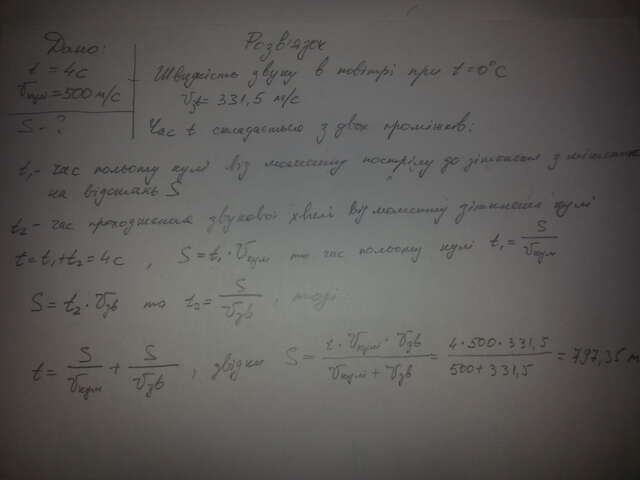 Дано:
t = 4 с
Vкулі = 500 м/с
S - ?
Розв'язок
Швидкість звуку в повітрі при t = 0°C
Vзв = 331,5 м/с
Час t складається з двох проміжків:
t₁ - час польоту кулі від моменту пострілу до зіткнення з мішенню
на відстань S
t₂ - час проходження звукової хвилі від моменту зіткнення кулі
t = t₁ + t₂ = 4 с , S = t₁ · Vкулі то час польоту кулі t₁ = S / Vкулі
S = t₂ · Vзв то t₂ = S / Vзв , тоді
t = S / Vкулі + S / Vзв , звідки S = t · Vкулі · Vзв / Vкулі + Vзв = 4 · 500 · 331,5 / 500 + 331,5 = 797,35 м